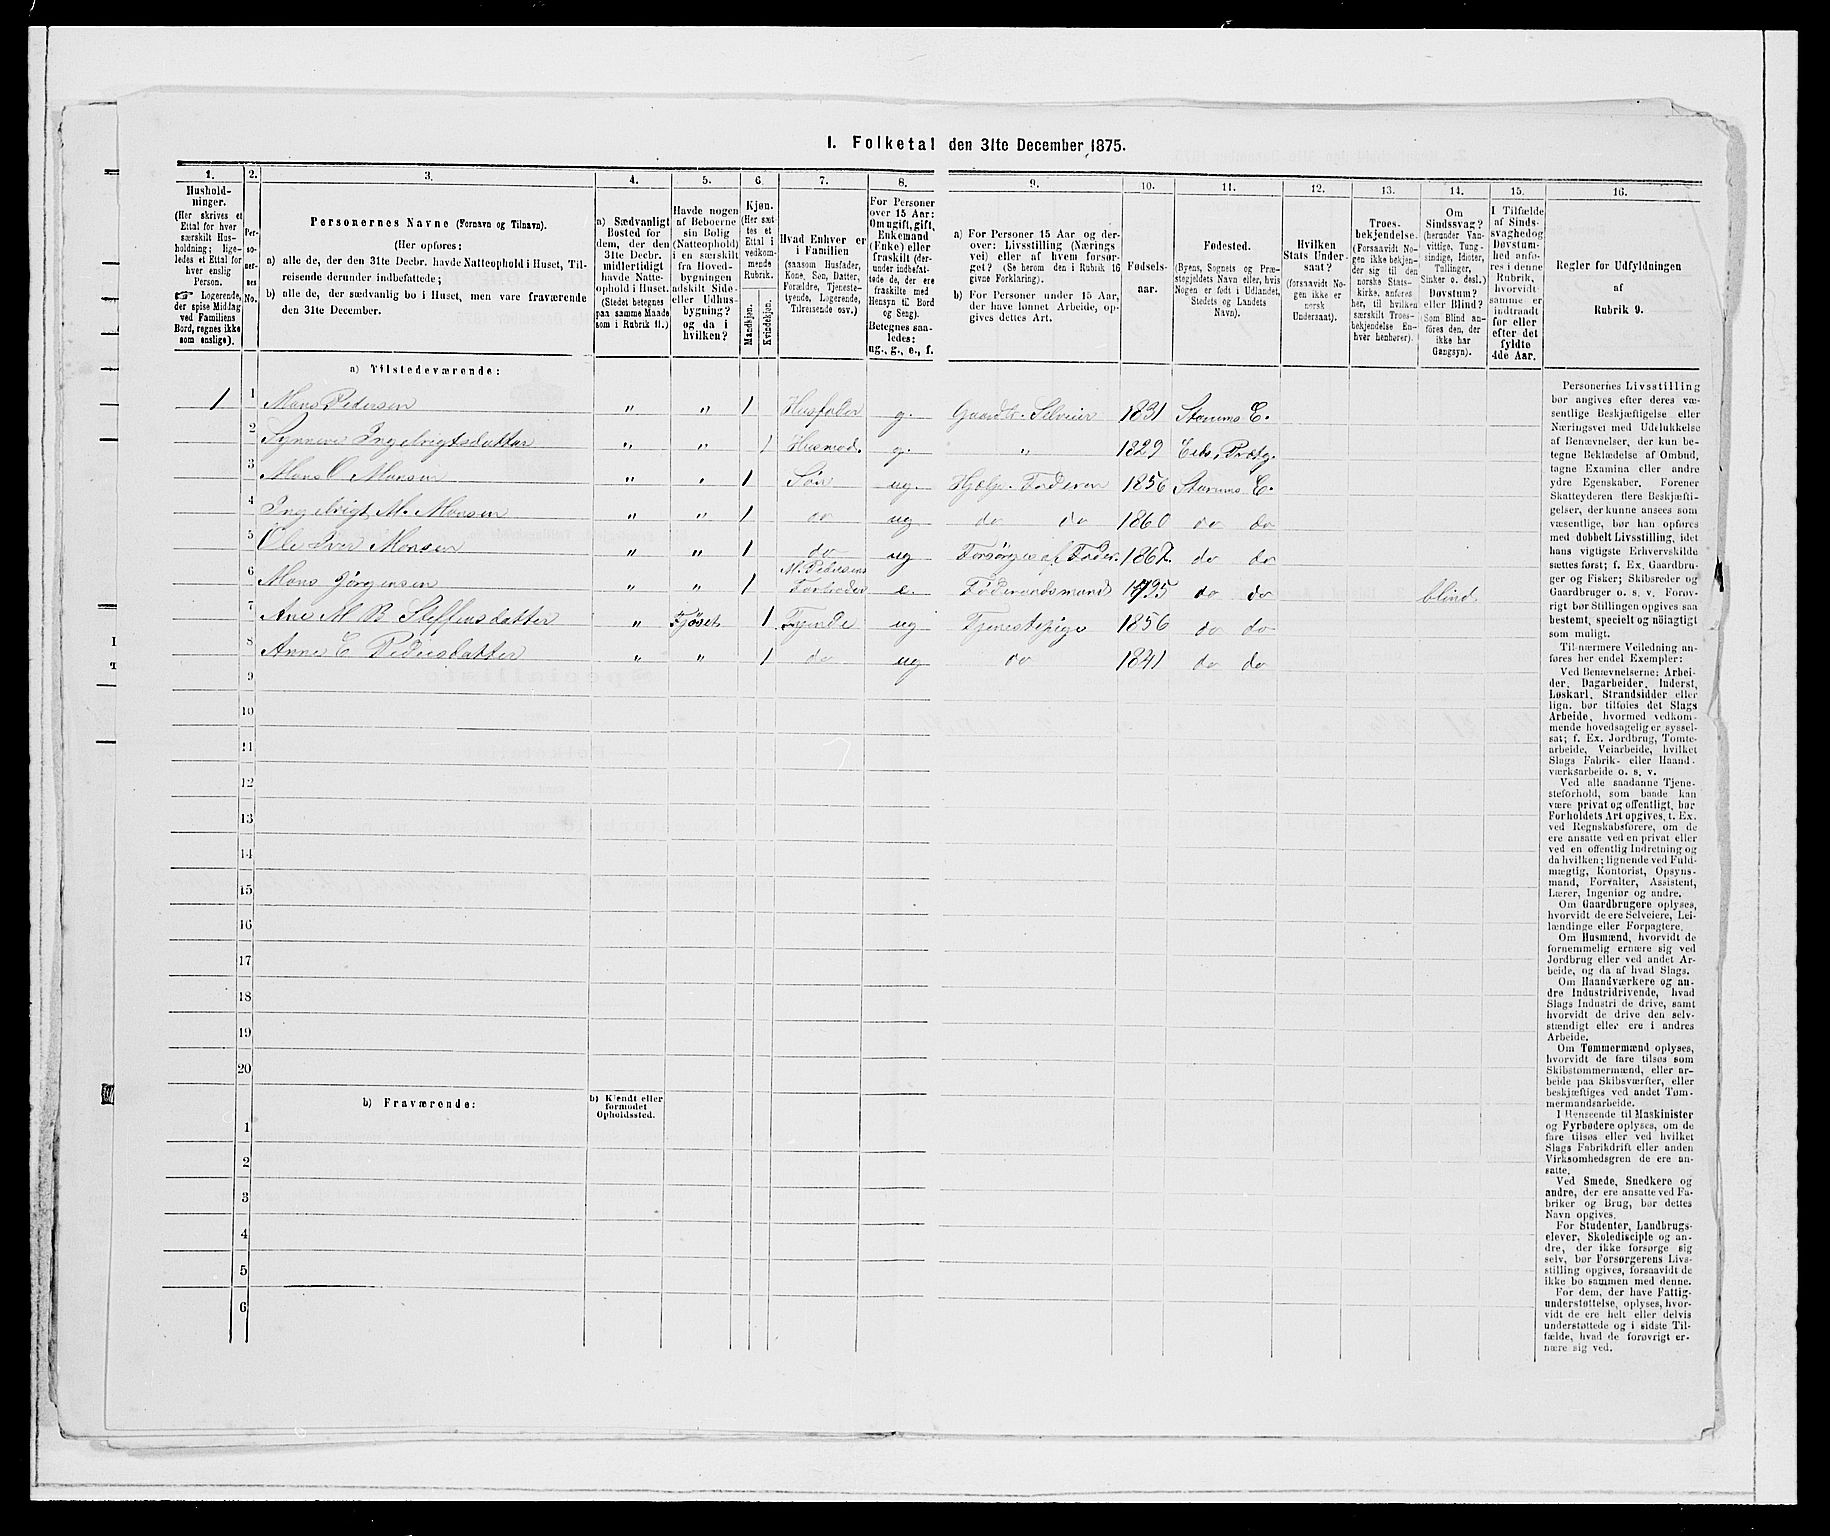 I. Folketal den 31te December 1875.
1. 2. 3. 4. 5. 6. 7. 8. 9. 10. 11. 12. 13. 14. 15. 16.
Hushold-
ninger.
(Her skrives et
Ettal for hver
særskilt Hus-
holdning; lige-
ledes et Ettal for
hver enslig
Person.
☞ Logerende,
der spise Middag
ved Familiens
Bord, regnes ikke
som enslige).
Per-
so-
ner-
nes
No.
Personernes Navne (Fornavn og Tilnavn).
(Her opføres:
a) alle de, der den 31te Decbr. havde Natteophold i Huset, Til-
reisende derunder indbefattede;
b) alle de, der sædvanlig bo i Huset, men vare fraværende
den 31te December.
a) Sædvanligt
Bosted for
dem, der den
31te Decbr.
midlertidigt
havde Natte-
ophold i Huset.
(Stedet betegnes
paa samme Maade
som i Rubrik 11.)
Havde nogen
af Beboerne
sin Bolig
(Natteophold)
i en særskilt
fra Hoved-
bygningen
adskilt Side-
eller Udhus-
bygning?
og da i
hvilken?
Kjøn.
(Her sæt-
tes et
Ettal i
vedkom-
mende
Rubrik.
Mandkjøn.
Kvindekjøn.
Hvad Enhver er
i Familien
(saasom Husfader,
Kone, Søn, Datter,
Forældre, Tjeneste-
tyende, Logerende,
Tilreisende osv.)
For Personer
over 15 Aar:
Om ugift, gift,
Enkemand
(Enke) eller
fraskilt (der-
under indbefat-
tede de, der ere
fraskilte med
Hensyn til Bord
og Seng).
Betegnes saa-
ledes:
ug., g., e., f.
a) For Personer 15 Aar og der-
over: Livsstilling (Nærings
vei) eller af hvem forsør-
get? (Se herom den i Rubrik 16
givne Forklaring).
b) For Personer under 15 Aar,
der have lønnet Arbeide, op-
gives dettes Art.
Fødsels-
aar.
Fødested.
(Byens, Sognets og Præ-
stegjeldets Navn eller, hvis
Nogen er født i Udlandet,
Stedets og Landets
Navn).
Hvilken
Stats Under-
saat?
(forsaavidt No-
gen ikke er
norsk
Undersaat).
Troes-
bekjendelse.
(Forsaavidt No-
gen ikke bekjen-
der sig til den
norske Stats-
kirke, anføres
her, til hvilken
særskilt Troes-
bekjendelse En-
hver henhører).
Om
Sindssvag?
(herunder Van-
vittige, Tung-
sindige, Idioter,
Tullinger,
Sinker o. desl.)
Døvstum?
eller Blind?
(Som Blind an-
føres den, der
ikke har
Gangsyn).
I Tilfælde
af Sinds-
svaghed og
Døvstum-
hed anfø-
res i denne
Rubrik,
hvorvidt
samme er
indtraadt
før eller
efter det
fyldte
4de Aar.
Regler for Udfyldningen
af
Rubrik 9.
a) Tilstedeværende:
1 1 Mons Pedersen „ „ 1 Husfader g. Gaardbr. Selveier 1831 Stavens E.
2 Synneve Ingebrigtsdatter „ „ 1 Husmod. g. „ 1829 Eids, Præstg.
3 Mons O Monsen „ „ 1 Søn ug. Hjælp. Faderen 1856 Stavens E.
4 Ingebrigt M. Monsen „ „ 1 do ug do do 1860 do do
5 Ole Iver Monsen „ „ 1 do ug Forsørges af Fader. 1867. do do
6 Mons Jørgensen „ „ 1 M. Pedersens
Farbroder e. Føderaadsmand 1795 do do blind.
7 Ane M B Steffensdatter „ Fjøset 1 Tyende ug Tjenestepige 1856 do do
8 Anne E Pedersdatter „ „ 1 do ug do 1841 do do
9
10
11
12
13
14
15
16
17
18
19
20
b) Fraværende: b) Kjendt eller
formodet
Opholdssted.
1
2
3
4
5
6
Personernes Livsstilling
bør angives efter deres væ-
sentlige Beskjæftigelse eller
Næringsvei med Udelukkelse
af Benævnelser, der kun be-
tegne Beklædelse af Ombud,
tagne Examina eller andre
ydre Egenskaber. Forener
Skatteyderen flere Beskjæfti-
gelser, der kunne ansees som
væsentlige, bør han opføres
med dobbelt Livsstilling, idet
hans vigtigste Erhvervskilde
sættes først; f. Ex. Gaardbru-
ger og Fisker; Skibsreder og
Gaardbruger o. s. v. Forøv-
rigt bør Stillingen opgives saa
bestemt, specielt og nöiagtigt
som muligt.
Til nærmere Veiledning an-
føres her endel Exempler:
Ved Benævnelserne: Arbei-
der, Dagarbeider, Inderst,
Løskarl, Strandsidder eller
lign. bør tilføies det Slags
Arbeide, hvormed vedkom-
mende hovedsagelig er syssel-
sat; f. Ex. Jordbrug, Tomte-
arbeide, Veiarbeide, hvilket
Slags Fabrik- eller Haand-
værksarbeide o. s. v.
Ved alle saadanne Tjene-
steforhold, som baade kan
være privat og offentligt, bør
Forholdets Art opgives, t. Ex.
ved Regnskabsførere, om de
ere ansatte ved en privat eller
ved en offentlig Indretning og
da hvilken; lignende ved Fuld-
mægtig, Kontorist, Opsyns-
mand, Forvalter, Assistent,
Lærer, Ingeniør og andre.
Om Gaardbrugere oplyses,
hvorvidt de ere Selveiere, Lei-
lændinge eller Forpagtere.
Om Husmænd, hvorvidt de
fornemmelig ernære sig ved
Jordbrug eller ved andet Ar-
beide, og da af hvad Slags.
Om Haandværkere og an-
dre Industridrivende, hvad
Slags Industri de drive, samt
hvorvidt de drive den selv-
stændigt eller ere i andres
Arbeide.
Om Tømmermænd oplyses,
hvorvidt de fare tilsøs som
Skibstømmermænd, eller ar-
beide paa Skibsværfter, eller
beskjæftiges ved andet Tøm-
mermandsarbeide.
I Henseende til Maskinister
og Fyrbødere oplyses, om de
fare tilsøs eller ved hvilket
Slags Fabrikdrift eller anden
Virksomhedsgren de ere an-
satte.
Ved Smede, Snedkere og
andre, der ere ansatte ved Fa-
briker og Brug, bør dettes
Navn opgives.
For Studenter, Landbrugs-
elever, Skoledisciple og an-
dre, der ikke forsørge sig
selv, bør Forsørgerens Livs-
stilling opgives, forsaavidt de
ikke bo sammen med denne.
For dem, der have Fattig-
understøttelse, oplyses, hvor-
vidt de ere helt eller delvis
understøttede og i sidste Til-
fælde, hvad de forøvrigt er-
nære sig ved.